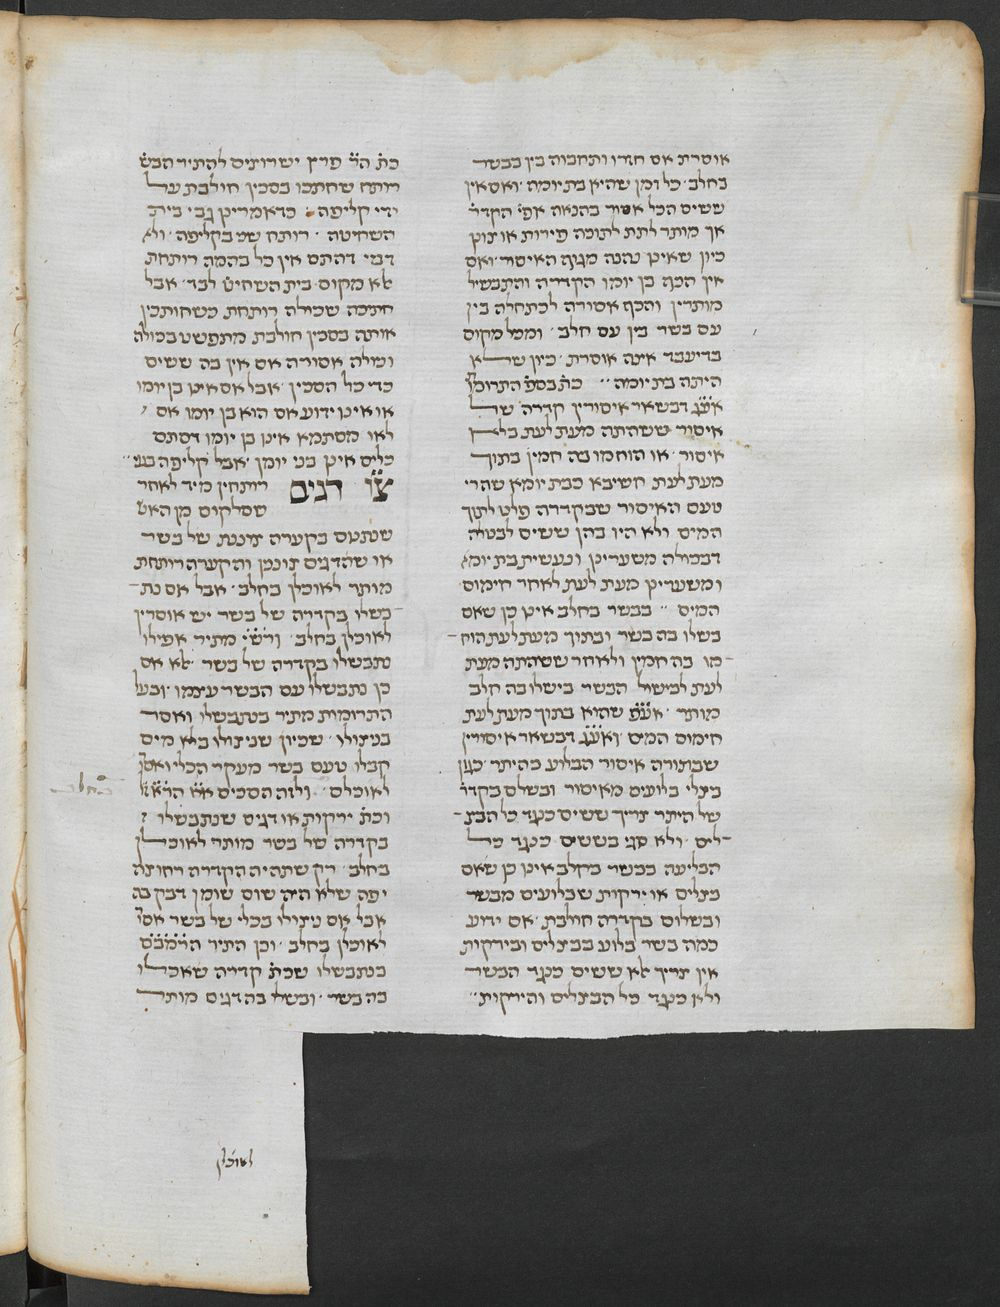 אוסרת אם חזרו ותחבוה בין בבשר
בחלב׳ כל זמן שהיא בת יומה׳ ואם אין
ששים הכל אסור בהנאה אפי׳ הקדר׳
אך מותר לתת לתוכה פירות או צונן
כיון שאינו נהנה מגוף האיסור׳ ואם
אין הכף בן יומו הקדרה והתבשיל
מותרין והכף אסורה לכתחלה בין
עם בשר בין עם חלב׳ ומכל מקום
בדיעבד אינה אוסרת׳ כיון שלא
היתה בת יומה׳׳ כת׳ בספ׳ התרומ׳
אע״ג דבשאר איסורין קדרה של
איסור ששהתה מעת לעת בלא
איסור׳ או הוחמו בה חמין בתוך
מעת לעת חשיבא כבת יומא שהרי
טעם האיסור שבקדרה פלט לתוך
המים ולא היו בהן ששים לבטלה
דבכולה משערינן ונעשית בת יומא
ומשערינן מעת לעת לאחר חימום
המים׳׳ בבשר בחלב אינו כן שאם
בשלו בה בשר ובתוך מעת לעת הוח
מו בה חמין ולאחר ששהתה מעת
לעת לבישול הבשר בישלו בה חלב
מותר׳ אע״פ שהוא בתוך מעת לעת
חימום המים׳ ואע״ג דבשאר איסורין
שבתורה איסור הבלוע בהיתר׳ כגון
בצלי בלועים מאיסור ובשלם בקדר׳
של היתר צריך ששים כנגד כל הבצ
לים׳ ולא סגי בששים כנגד כל
הבליעה בבשר בחלב אינו כן שאם
בצלים או ירקות שבלועים מבשר
ובשלום בקדרה חולבת׳ אם ידוע
כמה בשר בלוע בבצלים ובירקות
אין צריך אלא ששים כנגד הבשר
ולא כנגד כל הבצלים והירקות׳׳
כת׳ הר״ פרץ יש רוצים להתיר הבש׳
רותח שחתכו בסכין חולבת על
ידי קליפה׳ כדאמרינן גבי בית
השחיטה׳ רותח שם בקליפה׳ ולא
דמי דהתם אין כל בהמה רותחת
אלא מקום בית השחיט׳ לבד׳ אבל
חתיכה שכולה רותחת כשחותכין
אותה בסכין חולבת מתפשט בכולה
וכולה אסורה אם אין בה ששים
כדי כל הסכין׳ אבל אם אינו בן יומו
או אינו ידוע אם הוא בן יומו אם
לאו מסתמא אינו בן יומו דסתם
כלים אינן בני יומן׳ אבל קליפה בעי׳׳
צ״ו דגים רותחין מיד לאחר
שסלקום מן האש
שנתנם בקערה צוננת של בשר
או שהדגים צונגן והקערה רותחת
מותר לאוכלן בחלב׳ אבל אם נת
בשלו בקדרה של בשר יש אוסרין
לאוכלן בחלב׳ ורש״י מתיר אפילו
נתבשלו בקדרה של בשר אלא אם
כן נתבשלו עם הבשר עצמו׳ ובעל
התרומות מתיר בנתבשלו ואסר
בניצולו׳ שכיון שניצולו בלא מים
קבלו טעם בשר מעקר הכלי ואסו׳
לאוכלם׳ ולזה הסכים א״א הרא״ש
וכת׳ ירקות או דגים שנתבשלו
בקדרה של בשר מותר לאוכלן
בחלב׳ רק שתהיה הקדרה רחוצה
יפה שלא היה שום שומן דבק בה
אבל אם ניצולו בכלי של בשר אסו׳
לאוכלן בחלב׳ וכן התיר הרמב״ם
בנתבשלו שכת׳ קדרה שאכלו
בה בשר׳ ובשל בה דגים מותר
לאוכלן